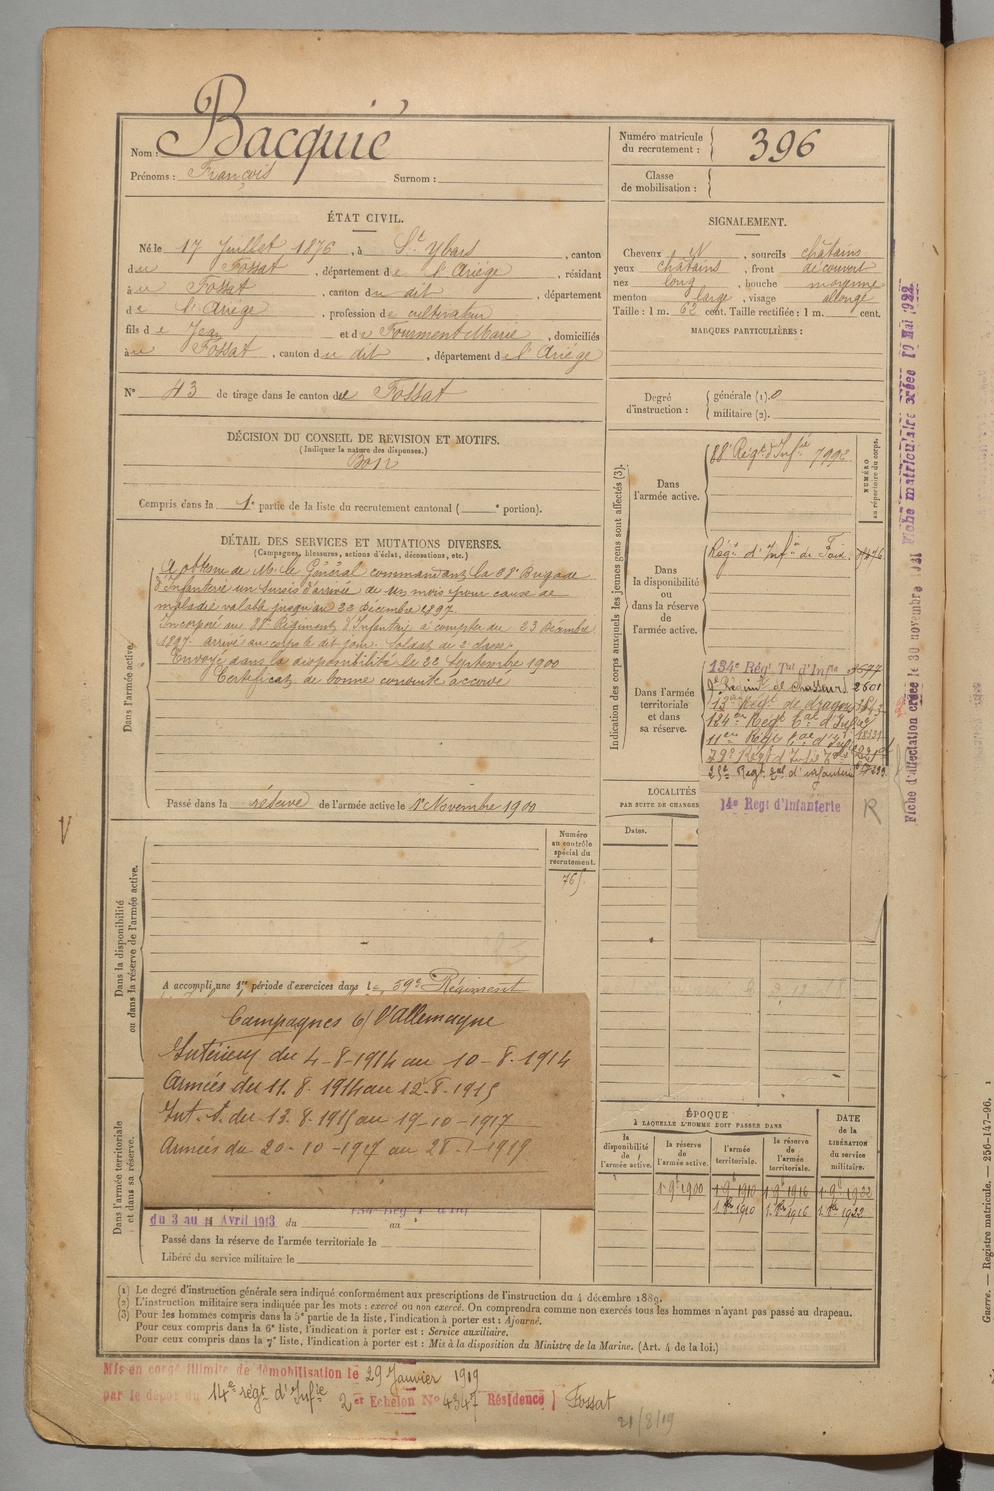 Nom : Bacquié
Prénoms : François Surnom :
Numéro matricule du recrutement : 396
Classe de mobilisation :
ÉTAT CIVIL.
Né le 17 Juillet 1876, à St Ybars, canton
du Fossat, département de l'Ariége, résidant
à u Fossat, canton du dit, département
de l'Ariége, profession de cultivateur
fils de Jean et de Fourment Marie, domiciliés
à u Fossat, canton du dit, département de l'Ariége
N° 43 de tirage dans le canton de Fossat
SIGNALEMENT.
Cheveux N, sourcils châtains
yeux châtains, front découvert
nez long, bouche moyenne
menton large, visage allongé
Taille : 1 m. 62 cent. Taille rectifiée : 1 m. cent.
MARQUES PARTICULIÈRES :
Degré d'instruction : générale (1). 0
militaire (2).
DÉCISION DU CONSEIL DE REVISION ET MOTIFS.
(Indiquer la nature des dispenses.)
Bon
Compris dans la 1e partie de la liste du recrutement cantonal ( e portion).
DÉTAIL DES SERVICES ET MUTATIONS DIVERSES.
(Campagnes, blessures, actions d'éclat, décorations, etc.)
Dans l'armée active.
A obtenu de Mr. le Général commandant la 38e Brigade
d'Infanterie un sursis d'arrivée de un mois pour cause de
maladie valable jusqu'au 22 décembre 1897
Incorporé au 88e Régiment d'Infanterie à compter du 23 Décembre
1897 arrivé au corps le dit jour. Soldat de 2e classe.
Envoyé dans la disponibilité le 22 Septembre 1900
Certificat de bonne conduite accordé
Passé dans la réserve de l'armée active le 1er Novembre 1900
Indication des corps auxquels les jeunes gens sont affectés (3).
NUMÉRO au répertoire du corps.
Dans l'armée active.
88e Régt d'Infie 7992
Dans la disponibilité ou dans la réserve de l'armée active.
Régt d'Infie de Foix.
Dans l'armée territoriale et dans sa réserve.
134e Régt Tal d'Infie
Régiment de Chasseurs 2601
13e Régt de dragons
124e Régt Tal d'Infie
11e Régt
14e Regt d'Infanterie
R
Fiche d'affectation créée le 30 novembre 1931
Fiche matriculaire créée
LOCALITÉS
PAR SUITE DE CHANGE
Dates.
Dans la disponibilité ou dans la réserve de l'armée active.
Numéro au contrôle spécial du recrutement.
765
A accompli une 1re période d'exercices dans le 59e Régiment
Campagnes c/ l'Allemagne
Intérieur du 4-8-1914 au 10-8-1914
Armées du 11.8.1914 au 12.8.1915
Int. du 13.8.1915 au 19-10-1917
Armées du 20-10-1917 au 28-1-1919
Dans l'armée territoriale et dans sa réserve.
du 3 au 11 Avril 1913 du au
Passé dans la réserve de l'armée territoriale le
Libéré du service militaire le
ÉPOQUE
À LAQUELLE L'HOMME DOIT PASSER DANS
la disponibilité de l'armée active.
la réserve de l'armée active.
l'armée territoriale.
la réserve de l'armée territoriale.
DATE de la LIBÉRATION du service militaire.
1 9e 1900 1 9e 1910 1 9e 1916 1 9e 1922
1. 8bre 1910 1. 8bre 1916 1. 8bre 1922
(1) Le degré d'instruction générale sera indiqué conformément aux prescriptions de l'instruction du 4 décembre 1889.
(2) L'instruction militaire sera indiquée par les mots : exercé ou non exercé. On comprendra comme non exercés tous les hommes n'ayant pas passé au drapeau.
(3) Pour les hommes compris dans la 5e partie de la liste, l'indication à porter est : Ajourné.
Pour ceux compris dans la 6e liste, l'indication à porter est : Service auxiliaire.
Pour ceux compris dans la 7e liste, l'indication à porter est : Mis à la disposition du Ministre de la Marine. (Art. 4 de la loi.)
Mis en congé illimité de démobilisation le 29 Janvier 1919
par le dépôt du 14e régt d'Infie 2e Echelon N° 4347 Résidence Fossat
21/8/19
V
Guerre. — Registre matricule. — 256-147-96.